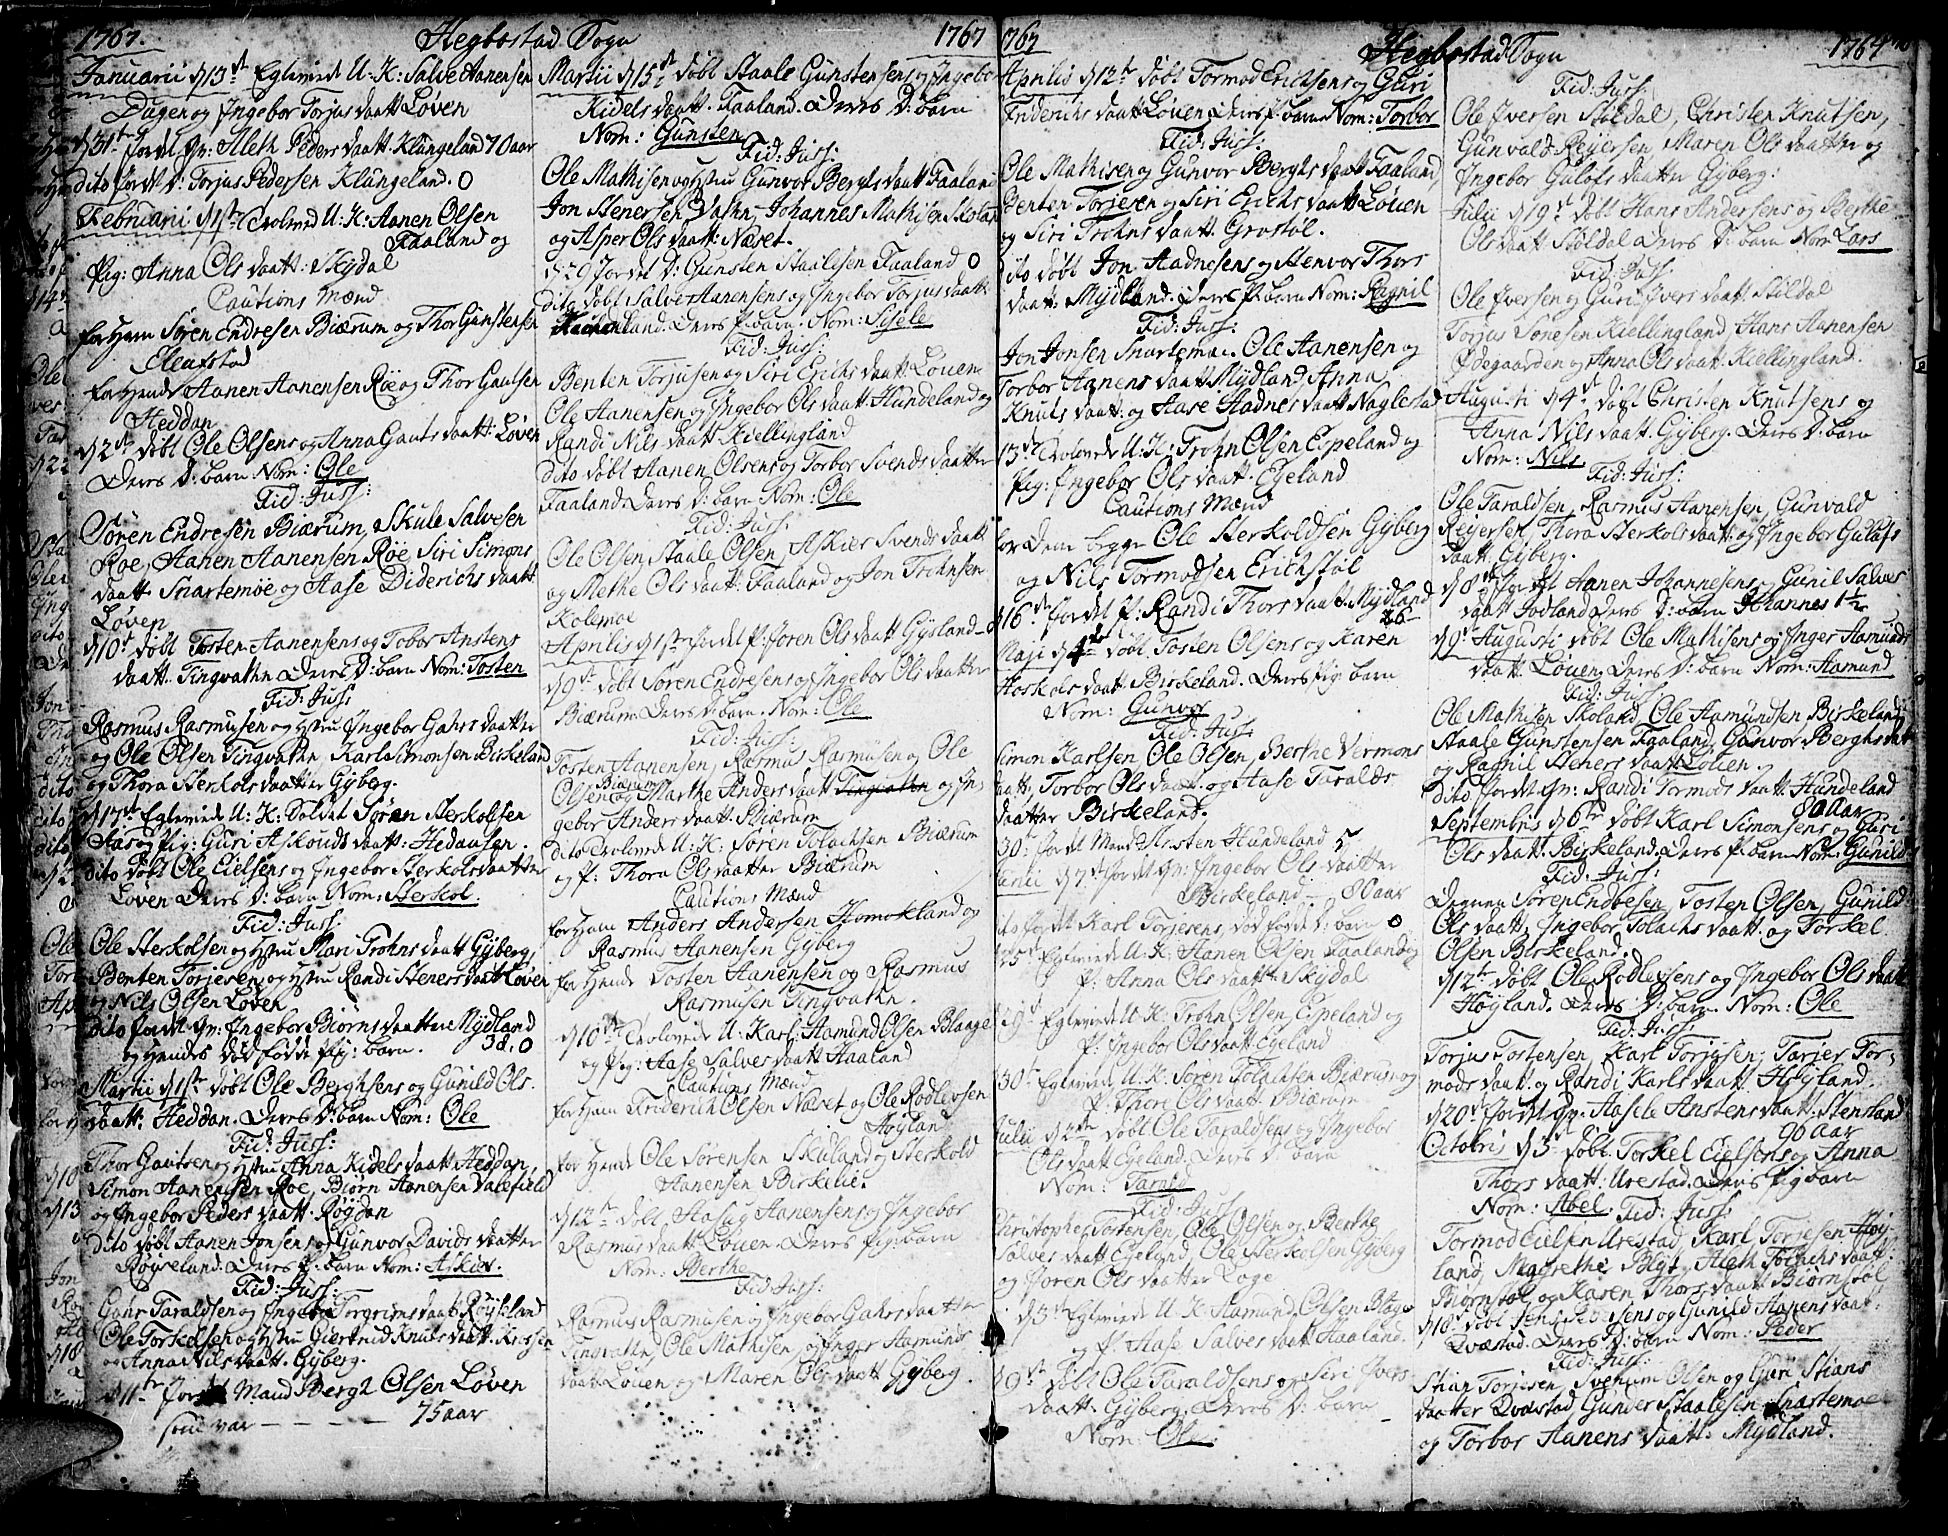 1767. Hegbostad Sogn 1767
Januarii d 13de Egteviede U: K: Salve Aanensen
Dagen og Ingebor Torjus daatt Løven
d 31te jordet Qv: Aleth Peders daatt Klungeland 70 aar
dito jordt D: Torjus Pedersen Klungeland. 0
Februarii d 1ste Trolovede U: K: Aanen Olsen
Faaland og
Pig: Anna Ols daatt: Skydal
Cautions Mænd
for Ham Søren Endresen Biærum og Thor Gunstensen
Eleafstad
for Hende Aanen Aanensen Røe og Thor Gautsen
Heddan
d 2de døbt Ole Olsens og Anna Gauts daatt: Løven
Deres D: barn Nom: Ole
Fid: Juss:
Søren Endresen Biærum, Skule Salvesen
Roe, Aanen Aanensen Røe Siri Simons
daatt. Snartemoe og Aase Diderichs daatt
Løven
d 10de døbt Tosten Aanensens og Tobor Anstens
daatt. Tingvathn Deres D: barn Nom: Tosten
Fid: Juss
Rasmus Rasmusen og Hstru Ingebor Gahrs daatter
og Ole Olsen Tingvathn Karl Simonsen Birkeland
og Thora Sterkols daatter Gyberg.
d 17de Egteviede U: K: Soldat Søren Sterkolsen
Aas og Pig: Guri Askouds daatt: Hedansen.
dito døbt Ole Eielsens og Ingebor Sterkols daatter
Løven Deres D: barn Nom: Sterkol.
Fid: Juss:
Ole Sterkolsen og Hstru Mari Trohns daatt Gyberg,
Benten Torjesen og Hstru Randi Steners daatt Løven
og Nils Olsen Løven
dito jordt Qv: Ingebor Biørns daatter Mydland
og Hendes død fødde Pig: barn. 38. 0
Martii d 1ste døbt Ole Berghsens og Gunild Ols
daatt. Heddan. Deres D: barn Nom: Ole
Fid: Juss:
Thor Gautsen og Hstru Anna Kidels daatt Heddan,
Simon Aanensen Roe, Biørn Aanensen Valefield
og Ingebor Peders daatt. Røgdan
dito døbt Aanen Jonsens og Gunvor Davids daatter
Røyseland. Deres P: barn Nom: Askier.
Fid: Juss:
Gahr Taraldsen og Ingebor Torgrims daatt Røyseland
Ole Torkelsen og Hstru Giertrud Knuts daatt.
og Anna Nils daatt. Gyberg.
d 11te Jordet Mand Bergt Olsen Løven
som var - - - - - 75 aar
Martii d 15de døbt Staale Gunstensens og Ingebor
Kidels daatt. Faaland. Deres D: barn
Nom: Gunsten
Fid: Juss:
Ole Mathisen og Hstru Gunvor Berghs daatt Faaland
Jon Stenersen Vathn, Johannes Mathisen Skoland
og Asper Ols daatt: Næset.
d 20 Jordet D: Gunsten Staalesen Faaland 0
dito døbt Salve Aanensens og Ingebor Torjus daatt
land. Deres P: barn. Nom: Sisele
Fid: Juss:
Benten Torjusen og Siri Erichs daatt. Løven
Ole Aanensen og Ingebor Ols daatt: Hundeland og
Randi Nils daatt Kiellingland
dito døbt Aanen Olsens og Torbor Svends daatter
Faaland. Deres D: barn Nom: Ole
Fid: Juss:
Ole Olsen, Staale Olsen, Askier Svends daatt
og Methe Ols daatt: Faaland og Jon Trohnsen
Kolemoe
Aprilis d 1ste jordet P: Joren Ols daatt Gysland
d 9de døbt Søren Endresens og Ingebor Ols daatter
Biærum Deres D: barn. Nom: Ole
Fid: Juss:
Tosten Aanensen, Rasmus Rasmusen og Ole
Olsen Biærum og Marthe Anders daatt Tingvathn og In-
gebor Anders daatt: Biærum
dito Trolovede U: K: Søren Tolachsen Biærum
og P: Thora Ols daatter Biærum
Cautions Mænd
for Ham Anders Andersen Homokland og
Rasmus Aanensen Gyberg
for Hende Tosten Aanensen og Rasmus
Rasmusen Tingvathn.
d 10de Trolovede U: Karl: Aamund Olsen Blaage
og Pig: Aase Salves daatt Haaland
Cautions Mænd
for Ham Friderich Olsen Næset og Ole Rodlevsen
Høyland
for Hende Ole Sørensen Skuland og Sterkold
Aanensen Birkelie.
d 12te døbt Aasu Aanensens og Ingebor
Rasmus daatt Løuen. Deres Pig: barn
Nom: Berthe
Fid: Juss:
Rasmus Rasmusen og Ingebor Gahrs daatter
Tingvathn, Ole Mathisen, og Inger Aamunds
daatt Løuen og Maren Ols daatt Gyberg.
1767 Hegbostad Sogn 1767
Aprilis d 12te døbt Tormod Erichsens og Guri
Friderichs daatt Løuen Deres P: barn Nom: Torbor
Fid: Juss:
Ole Mathisen og Gunvor Berghs daatt Faaland,
Benten Torjesen og Siri Erichs daatt Løuen
og Siri Trohns daatt. Grostøl.
dito døbt Jon Aadnesens og Stenvor Thors
daatt. Mydland. Deres P: barn Nom: Ragnil
Fid: Juss:
Jon Jonsen Snartemoe. Ole Aanensen og
Torbor Aanens daatt Mydland, Anna
Knuts daatt: og Aase Aadnes daatt Naglestad
13de Trolovede U: K: Trohn Olsen Espeland og
Pig: Ingebor Ols daatt. Egeland
Cautions Mænd
for Dem begge Ole Sterkoldsen Gyberg
og Nils Tormodsen Erichstøl
d 16de jordet P: Randi Thors daatt Mydland
26
Maji d 4de døbt Tosten Olsens og Karen
Hoskols daatt Birkeland. Deres Pig: barn
Nom: Gunvor
Fid: Juss:
Simon Karlsen Ole Olsen, Berthe Vermons
daatt, Torbor Ols daatt. og Aase Taralds
daatter Birkeland.
30: jordt Mand Kirsten Hundeland 5
Junii d 7de jordet Qv: Ingebor Ols daatter
Birkeland - 80 aar
dito jordt Karl Torjesens død fødde D: barn 0
25de Egteviede U: K: Aanen Olsen Faaland og
P: Anna Ols daatt Skydal
29de Egteviede U: K: Trohn Olsen Espeland og
P: Ingebor Ols daatt Egeland
30te Egteviede U: K: Søren Tolachsen Biærum og
P: Thore Ols daatt Biærum
Julii d 2den døbt Ole Taraldsens og Ingebor
Ols daatt Egeland. Deres D: barn
Nom: Tarald
Fid: Juss:
Christopher Tostensen, Ole Olsen og Berthe
Sølves daatt Egeland, Ole Sterkolsen Gyberg
og Joren Ols daatter Loge
d 3de Egteviede U: K: Aamund Olsen Blage
og P: Aase Salves daatt Haaland.
d 9de døbt Ole Taraldsens og Siri Ivers
daatt. Gyberg. Deres D: barn
Nom: Ole
Fid: Juss:
Ole Iversen Støldal, Christen Knutsen,
Gunvald Reyersen, Maren Ols daatter og
Ingebor Gulofs daatter Gyberg:
Julii d 19de døbt Hans Andersens og Berthe
Ols daatt Støldal Deres D: barn Nom: Lars
Fid: Juss:
Ole Iversen og Guri Ivers daatt. Støldal
Torjus Tonesen Kiellingland Hans Aanensen
Ødegaarden og Anna Ols daatt. Kiellingland.
Augusti d 4de døbt Christen Knutsens og
Anna Nils daatt. Gyberg. Deres D: barn
Nom: Nils
Fid: Juss:
Ole Taraldsen, Rasmus Aanensen, Gunvald
Reyersen, Thora Sterkols daatt: og Ingebor Gulofs
daatt. Gyberg.
d 8de jordet Aanen Johannesens og Gunil Salves
daatt Jodland Deres D: barn Johannes 1 1/2
d 9de Augusti døbt Ole Mathisens og Inger Aamunds
daatt Løuen, Deres D: barn Nom: Aamund
Fid: Juss:
Ole Mathisen Skoland, Ole Aamundsen Birkeland
Staale Gunstensen Faaland, Gunvor Berghs datt
og Ragnil Steners daatt Løuen.
dito jordet Qv: Randi Tormods daatt Hundeland
80 aar
Septembris d 6te døbt Karl Simonsens og Guri
Ols daatt. Birkeland. Deres P: barn Nom: Gunild
Fid: Juss:
Degnen Søren Endresen, Tosten Olsen, Gunild
Ols daatt, Ingebor Tolachs daatt. og Torkel
Olsen Birkeland.
d 12te døbt Ole Rodlevsens og Ingebor Ols daatt
Høyland. Deres D: barn. Nom: Ole
Fid: Juss:
Torjus Tostensen, Karl Torjusen, Tarjer Tor-
mods daatt. og Randi Karls daatt. Høyland.
d 20de jordet Qv: Aasele Anstens daatt: Stensland
90 aar
Octobris d 3de døbt Torkel Eielsens og Anna
Thors daatt: Urestad. Deres Pig barn
Nom: Abel. Fid: Juss:
Tormod Eielsen Urestad, Karl Torjesen Høy-
land, Margrethe Blyt, Aleth Tolachs daatt:
Biørnstøl og Karen Thors daatt Biørnstøl
d 18de døbt Jens Pedersens og Gunild Aanens daatt:
Qvæstad. Deres D: barn Nom: Peder
Fid: Juss:
Stian Torjesen, Svenum Olsen og Guri Stians
daatter Qvæstad, Gunder Staalesen Snartemoe
og Torbor Aanens daatt: Mydland.